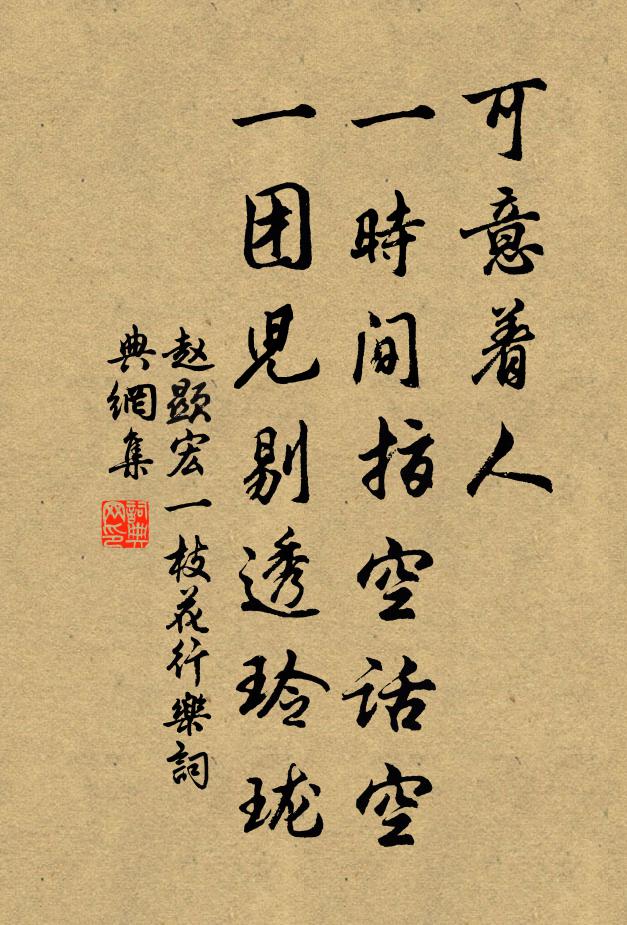 可意着人
一時间指空话空
一团児剔透玲珑
赵顕宏一枝花行樂詞
典網集
詞典網印